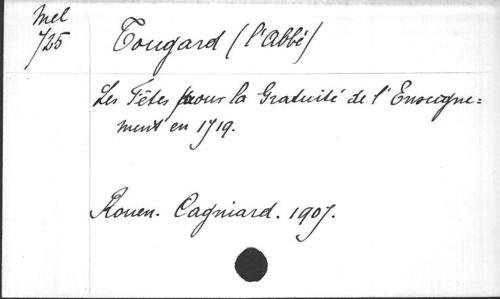 Mel
725
Tougard (l'Abbé)
Les Fêtes pour la Gratuité de l'Enseigne=
ment en 1719.
Rouen. Cagniard. 1907.